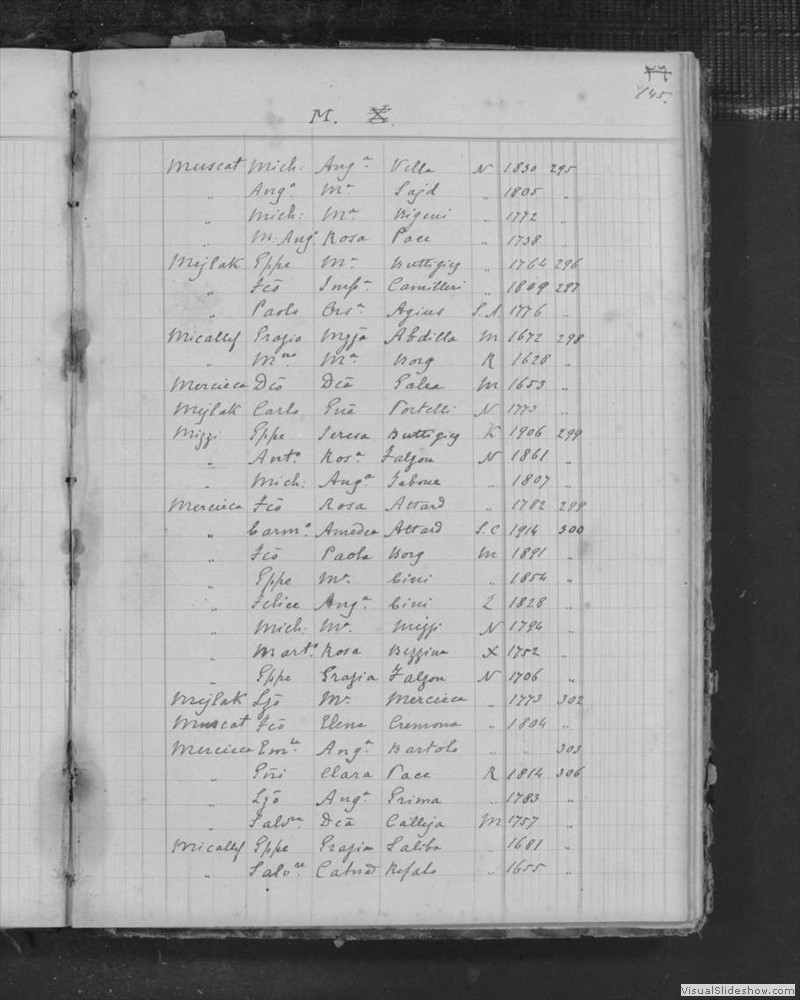 145.
M. X.
Muscat Mich: Angᵃ Vella N 1830 295
„ Angᵒ Mᵃ Sajd „ 1805 „
„ Mich: Mᵃ Bigeni „ 1772 „
„ M. Angᵒ Rosa Pace „ 1738 „
Mejlak Gppe Mᵃ Buttigieg „ 1764 296
„ Fcō Impᵃ Camilleri „ 1809 297
„ Paolo Orsᵃ Agius S.A. 1776 „
Micallef Grazio Mzjā Abdilla M 1672 298
„ Mⁿᵒ Mᵃ Borg R 1628 „
Mercieca Dcō Dcā Galea M 1653 „
Mejlak Carlo Gñā Portelli N 1773 „
Mizzi Gppe Teresa Buttigieg K 1906 299
„ Antᵒ Rosᵃ Falzon N 1861 „
„ Mich: Angᵃ Tabone „ 1807 „
Mercieca Fcō Rosa Attard „ 1782 299
„ Carmᵒ Amedea Attard S.C 1914 300
„ Fcō Paola Borg M 1891 „
„ Gppe Mᵃ Cini „ 1854 „
„ Felice Angᵃ Cini Z 1828 „
„ Mich: Mᵃ Mizzi N 1794 „
„ Martᵒ Rosa Bezzina X 1752 „
„ Gppe Grazia Falzon N 1706 „
Mejlak Ljō Mᵃ Mercieca „ 1773 302
Muscat Fcō Elena Cremona „ 1804 „
Mercieca Emˡᵉ Angᵃ Bartolo „ „ 303
„ Gñi Clara Pace R 1814 306
„ Ljō Angᵃ Grima „ 1783 „
„ Salvʳᵉ Dcā Calleja M 1757 „
Micallef Gppe Grazia Saliba „ 1681 „
„ Salvʳᵉ Catnā Refalo „ 1655 „
VisualSlideshow.com